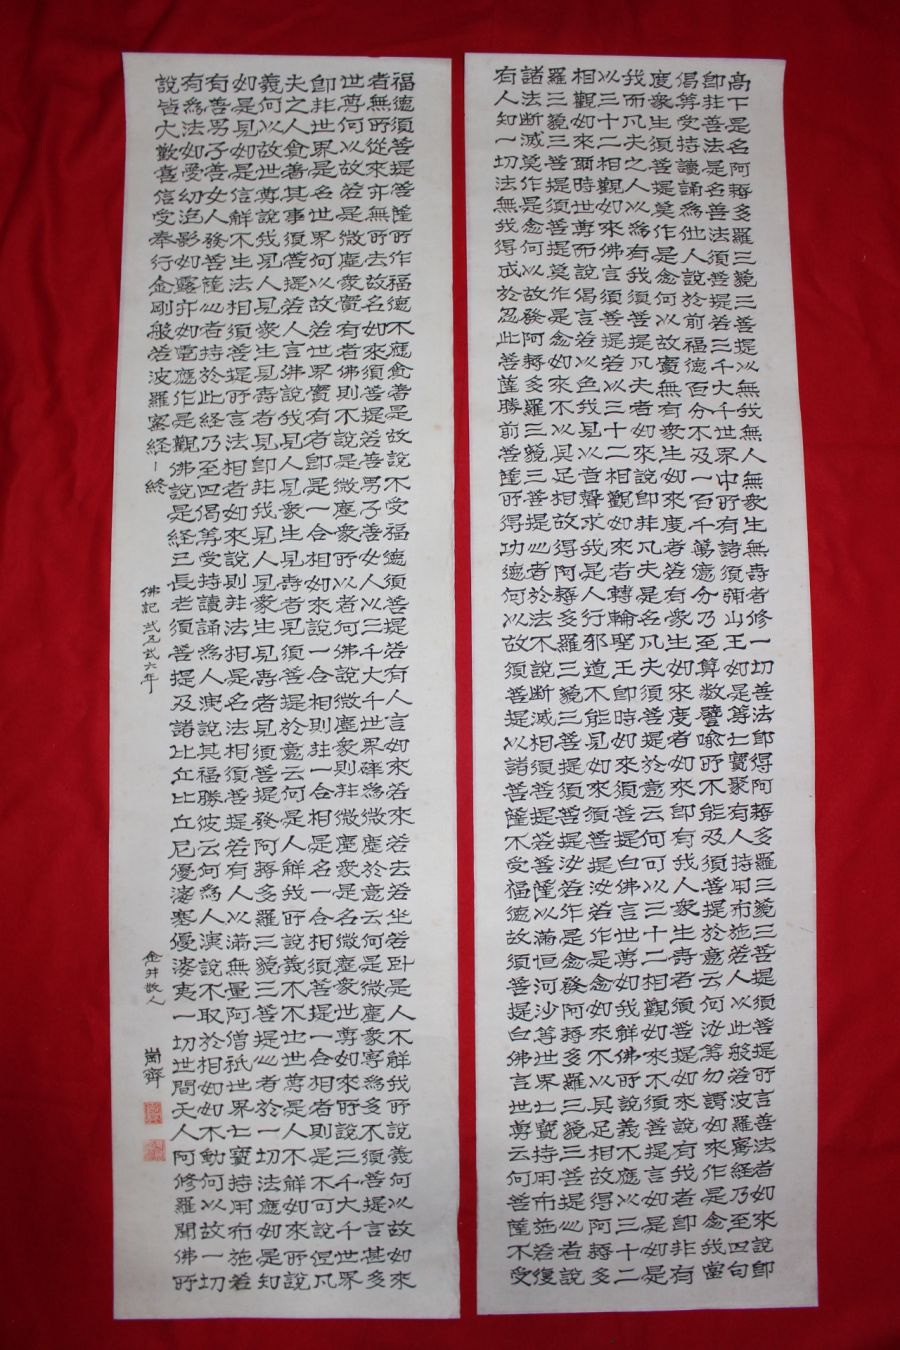 高下是名阿耨多羅三藐三菩提以無我無人無衆生無壽者修一切善法卽得阿耨多羅三藐三菩提須菩提所言善法者如來說卽
卽非善法是名善法須菩提若三千大千世界中所有諸須彌山王如是等七寶聚有人持用布施若人以此般若波羅蜜経乃至四句
偈等受持讀誦爲他人說於前福德百分不及一百千萬億分乃至算數譬喩所不能及須菩提於意云何汝等勿謂如來作是念我當
度衆生須菩提莫作是念何以故實無有衆生如來度者若有衆生如來度者如來卽有我人衆生壽者須菩提如來說有我者卽非有
我而凡夫之人以爲有我須菩提凡夫者如來說卽非凡夫是名凡夫須菩提於意云何可以三十二相觀如來不須菩提言如是如是
以三十二相觀如來佛言須菩提若以三十二相觀如來者轉輪聖王卽時如來須菩提白佛言世尊如我解佛所說義不應以三十二
相觀如來爾時世尊而說偈言若以色見我以音聲求我是人行邪道不能見如來須菩提汝若作是念如來不以具足相故得阿耨多
羅三藐三菩提須菩提莫作是念如來不以具足相故得阿耨多羅三藐三菩提須菩提汝若作是念發阿耨多羅三藐三菩提心者說
諸法断滅莫作是念何以故發阿耨多羅三藐三菩提心者於法不說断滅相須菩提若菩薩以滿恒河沙等世界七寶持用布施若復
有人知一切法無我得成於忍此菩薩勝前菩薩所得功德何以故須菩提以諸菩薩不受福德故須菩提白佛言世尊云何菩薩不受
福德須菩提菩薩所作福德不應貪著是故說不受福德須菩提若有人言如來若來若去若坐若臥是人不解我所說義何以故如來
者無所從來亦無所去故名如來須菩提若善男子善女人以三千大千世界碎爲微塵於意云何是微塵衆寧爲多不須菩提言甚多
世尊何以故若是微塵衆實有者佛則不說是微塵衆所以者何佛說微塵衆則非微塵衆是名微塵衆世尊如來所說三千大千世界
卽非世界是名世界何以故若世界實有者卽是一合相如來說一合相則非一合相是名一合相須菩提一合相者則是不可說但凡
夫之人貪著其事須菩提若人言佛說我見人見衆生見壽者見須菩提於意云何是人解我所說義不不也世尊是人不解如來所說
義何以故世尊說我見人見衆生見壽者見卽非我見人見衆生見壽者見須菩提發阿耨多羅三藐三菩提心者於一切法應如是知
如是見如是信解不生法相須菩提所言法相者如來說則非法相是名法相須菩提若有人以滿無量阿僧祇世界七寶持用布施若
有善男子善女人發菩薩心者持於此経乃至四偈等受持讀誦爲人演說其福勝彼云何爲人演說不取於相如如不動何以故一切
有爲法如夢幻泡影如露亦如電應作是觀佛說是経三長老須菩提及諸比丘比丘尼優婆塞優婆夷一切世間天人阿修羅聞佛所
說皆大歡喜信受奉行金剛般若波羅蜜経ー終
佛記 弎五弎六年 金井散人 崗齊